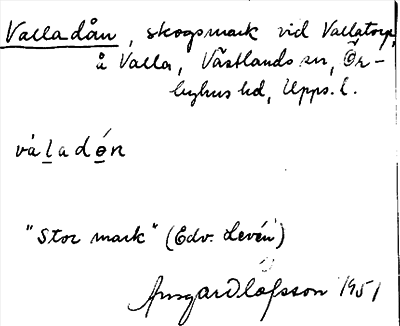 Valladån, skogsmark vid Vallatorp,
å Valla, Västlands sn, Ör-
byhus hd, Upps. l.
váladó̱n
"Stor mark" (Edv. Levén)
Ansgar Olofsson 1951